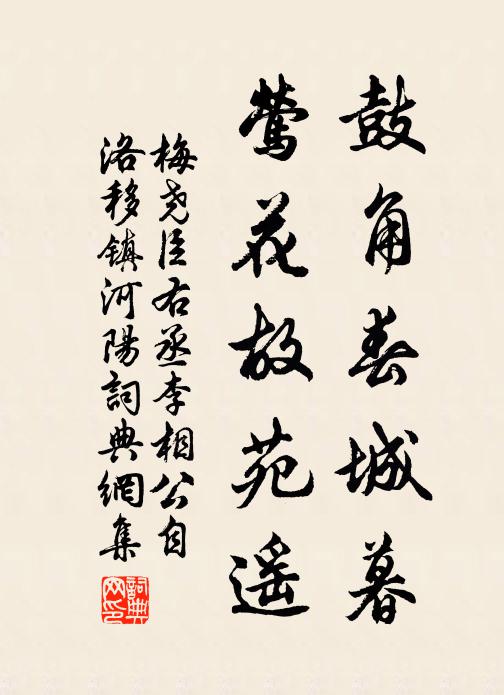 鼓角春城暮
鶯花故苑遥
梅尧臣右丞李相公自
洛移鎮河陽詞典網集
詞典
网印